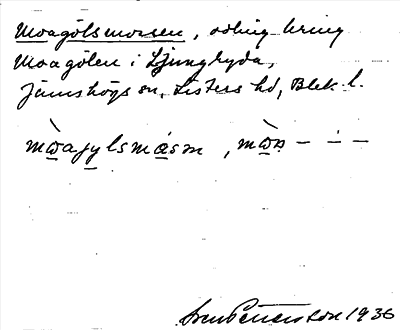 Moagölsmossen, odling kring
Moagölen i Ljungryda,
Jämshögs sn, Listers hd, Blek. l.
Sven Pettersson 1936